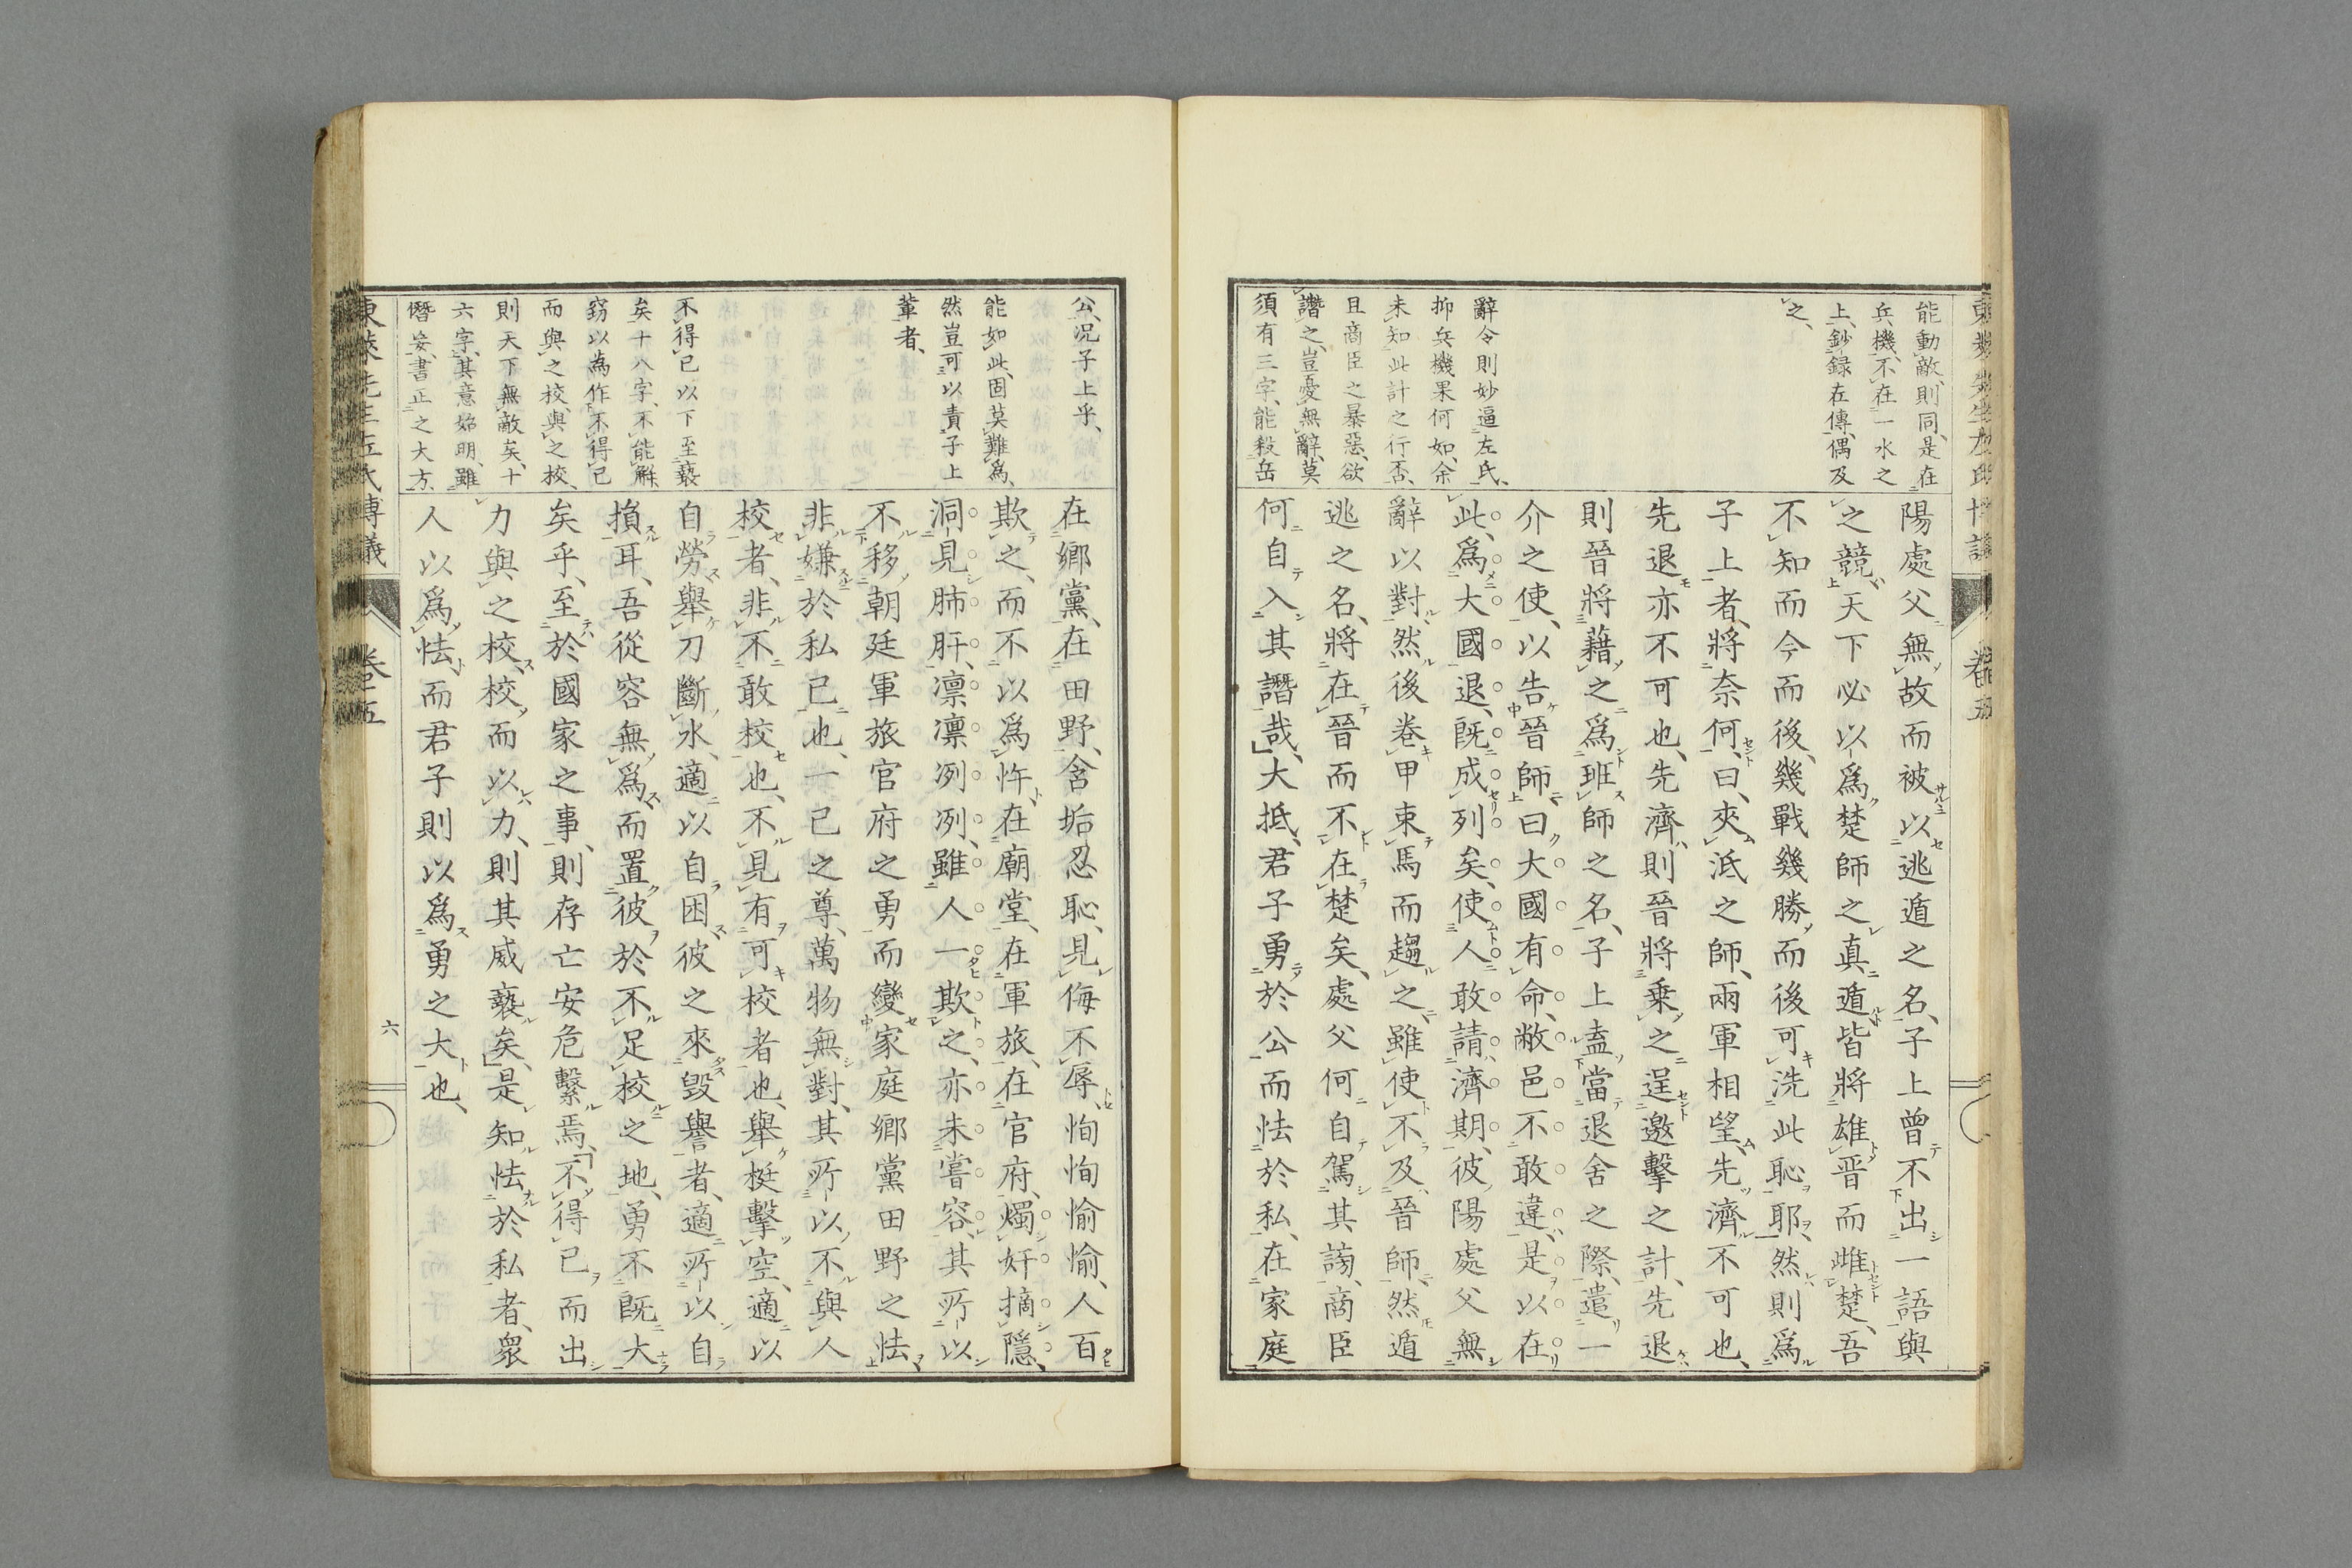 東萊先生左氏博議
卷五
能動敵、則同、是在
兵機、不在一水之
上、鈔録在傳、偶及
之、
辭令則妙逼左氏、
抑兵機果何如、余
未知此計之行否、
且商臣之暴惡、欲
譖之、豈憂無辭、莫
須有三字、能殺岳
陽處父無故而被以逃遁之名、子上曾不出一語與
之競、天下必以爲楚師之真遁皆將雄晋而雌楚、吾
不知而今而後、幾戰幾勝、而後可洗此恥耶、然則爲
子上者、將奈何、曰、夾泜之師、兩軍相望、先濟不可也、
先退亦不可也、先濟、則晉將乗之逞邀擊之計、先退
則晉將藉之爲班師之名、子上盍當退舍之際、遣一
介之使、以告晉師曰、大國有命、敝邑不敢違、是以在
此、爲大國退、既成列矣、使人敢請濟期、彼陽處父無
辭以對、然後卷甲束馬而趨之、雖使不及晉師、然遁
逃之名、將在晉而不在楚矣、處父何自駕其謗、商臣
何自入其譖哉、大抵、君子勇於公而怯於私、在家庭
公、況子上乎、
能如此、固莫難爲、
然豈可以責子上
軰者、
不得已以下至褻
矣十八字、不能解、
竊以為作不得已
而與之校、與之校、
則天下無敵矣、十
六字、其意始明、雖
僭妄、書正之大方、
在鄉黨、在田野、含垢忍恥、見侮不辱、恂恂愉愉、人百
欺之、而不以爲忤、在廟堂、在軍旅、在官府、燭奸摘隱、
洞見肺肝、凛凛冽冽、雖人一欺之、亦未嘗容、其所以
不移朝廷軍旅官府之勇而變家庭鄉黨田野之怯、
非嫌於私己也、一己之尊、萬物無對、其所以不與人
校者、非不敢校也、不見有可校者也、舉梃擊空、適以
自勞、舉刀斷水、適以自困、彼之來毀譽者、適所以自
損耳、吾從容無爲、而置彼於不足校之地、勇不既大
矣乎、至於國家之事、則存亡安危繫焉、不得已而出
力與之校、校而以力、則其威褻矣、是知怯於私者、衆
人以爲怯而君子則以爲勇之大也、
東萊先生左氏博議
卷五
六